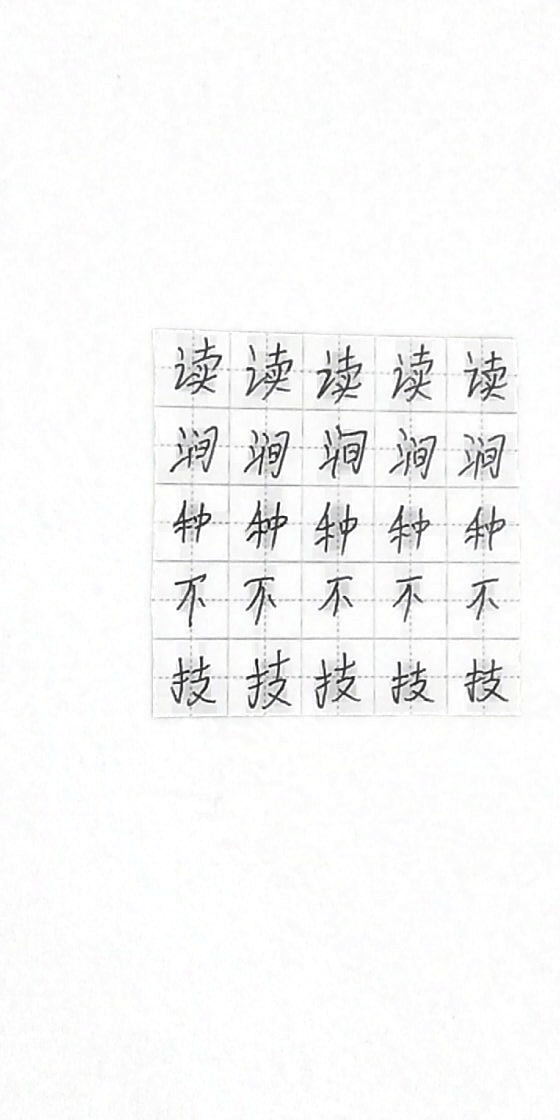 读读读读读
涧涧涧涧涧
种种种种种
不不不不不
技技技技技